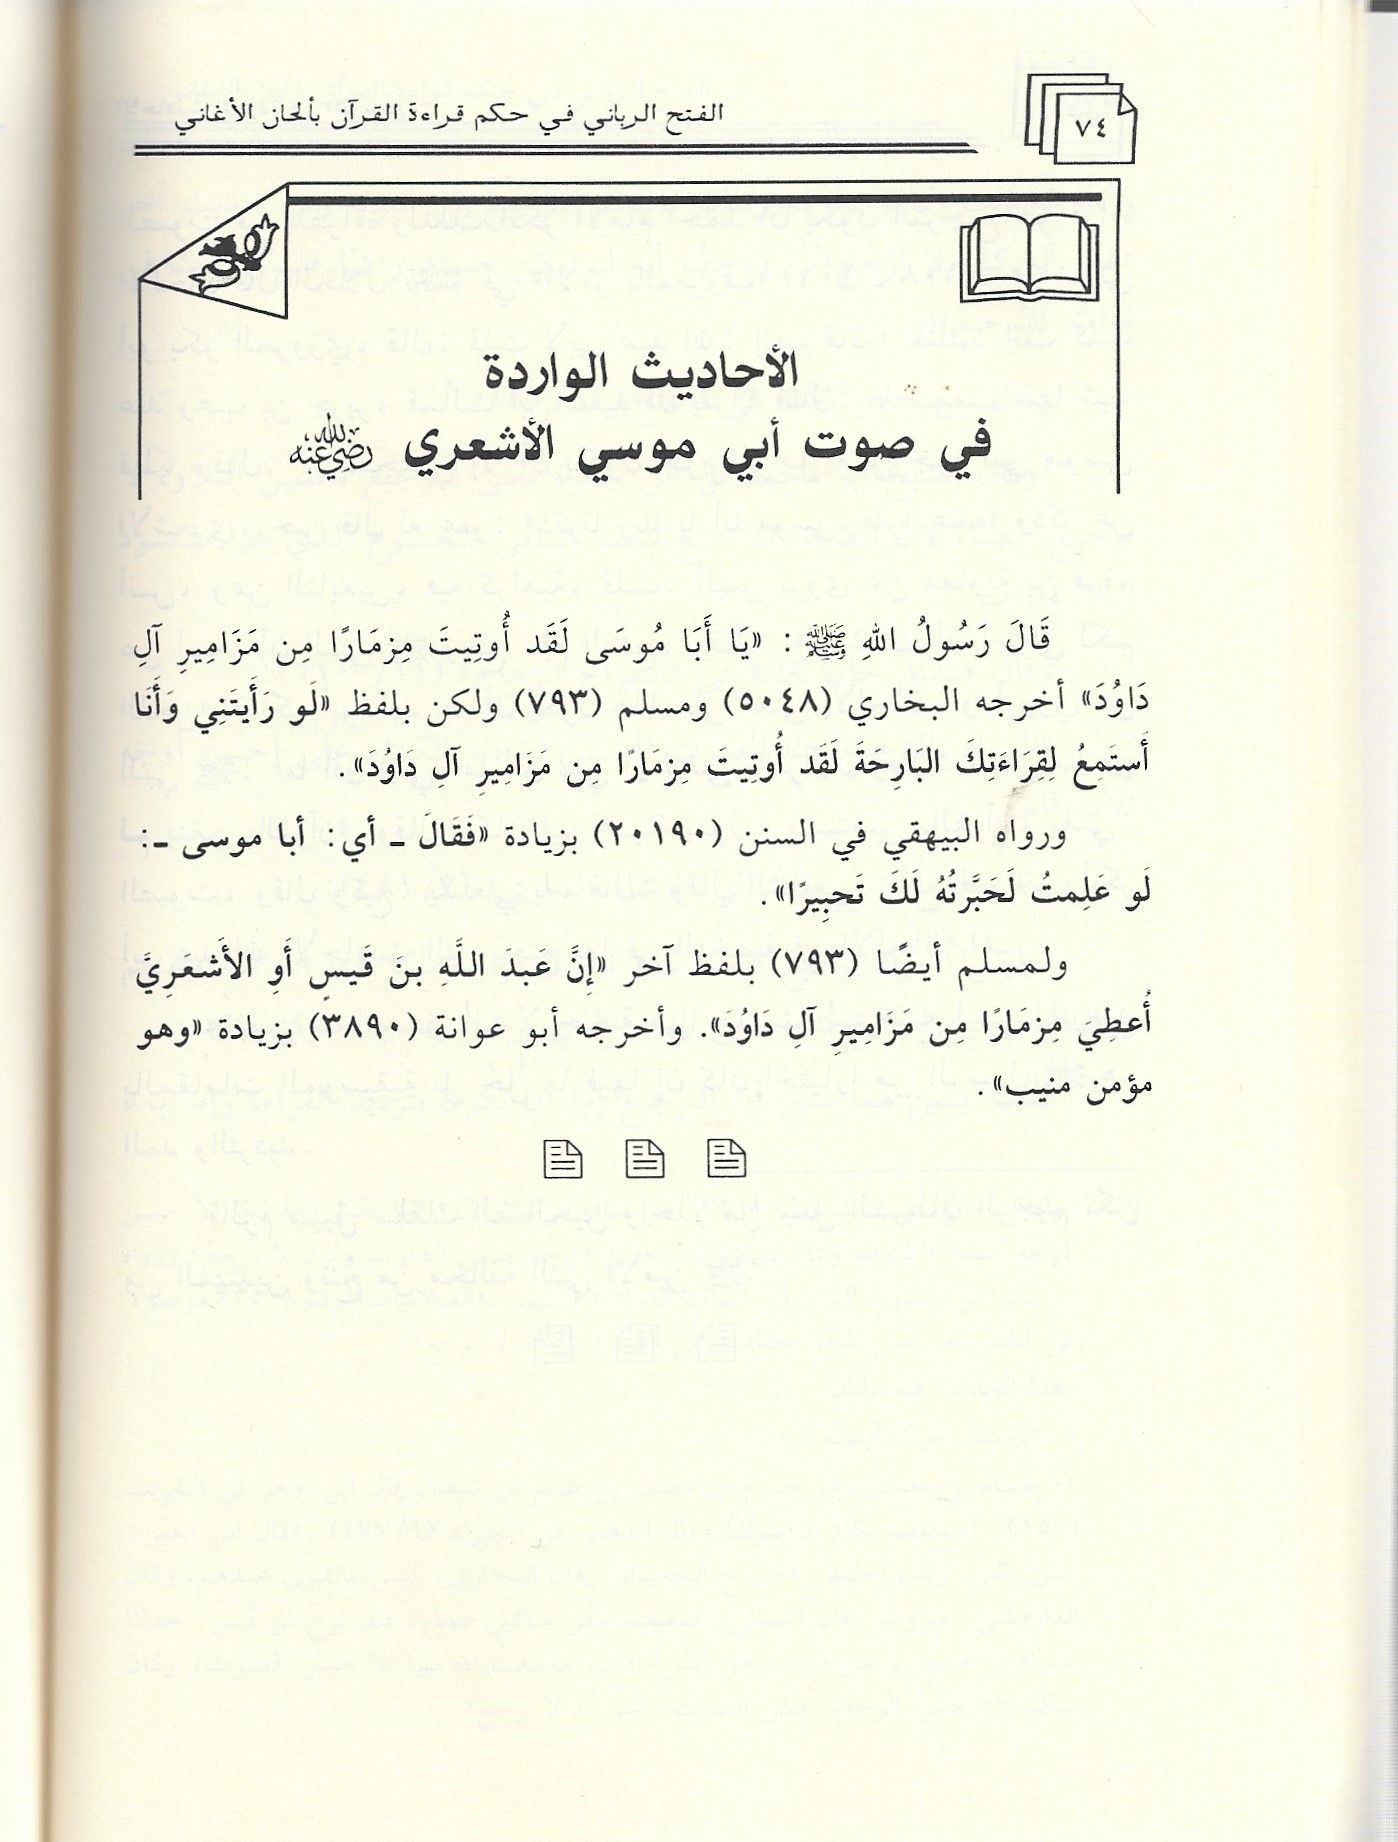 ٧٤
الفتح الرباني في حكم قراءة القرآن بألحان الأغاني
الأحاديث الواردة
في صوت أبي موسي الأشعري رضي الله عنه
قَالَ رَسُولُ اللهِ ﷺ : «يَا أَبَا مُوسَى لَقَد أُوتِيتَ مِزمَارًا مِن مَزَامِيرِ آلِ
دَاوُدَ» أخرجه البخاري (٥٠٤٨) ومسلم (٧٩٣) ولكن بلفظ «لَو رَأَيتَنِي وَأَنَا
أَستَمِعُ لِقِرَاءَتِكَ البَارِحَةَ لَقَد أُوتِيتَ مِزمَارًا مِن مَزَامِيرِ آلِ دَاوُدَ».
ورواه البيهقي في السنن (٢٠١٩٠) بزيادة «فَقَالَ ـ أي: أبا موسى ـ:
لَو عَلِمتُ لَحَبَّرتُهُ لَكَ تَحبِيرًا».
ولمسلم أيضًا (٧٩٣) بلفظ آخر «إِنَّ عَبدَ اللَّهِ بنَ قَيسٍ أَوِ الأَشعَرِيَّ
أُعطِيَ مِزمَارًا مِن مَزَامِيرِ آلِ دَاوُدَ». وأخرجه أبو عوانة (٣٨٩٠) بزيادة «وهو
مؤمن منيب».